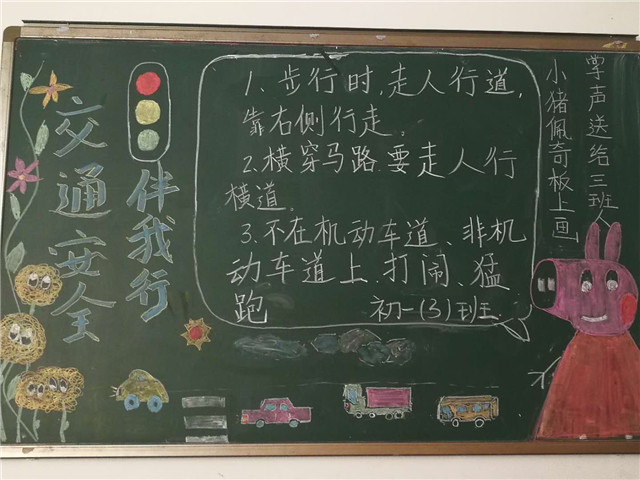 交通安全
伴我行
1、步行时,走人行道,
靠右侧行走。
2、横穿马路.要走人行
横道。
3.不在机动车道、非机
动车道上.打闹、猛
跑
初一(3)班
小猪佩奇板上画
掌声送给三班人